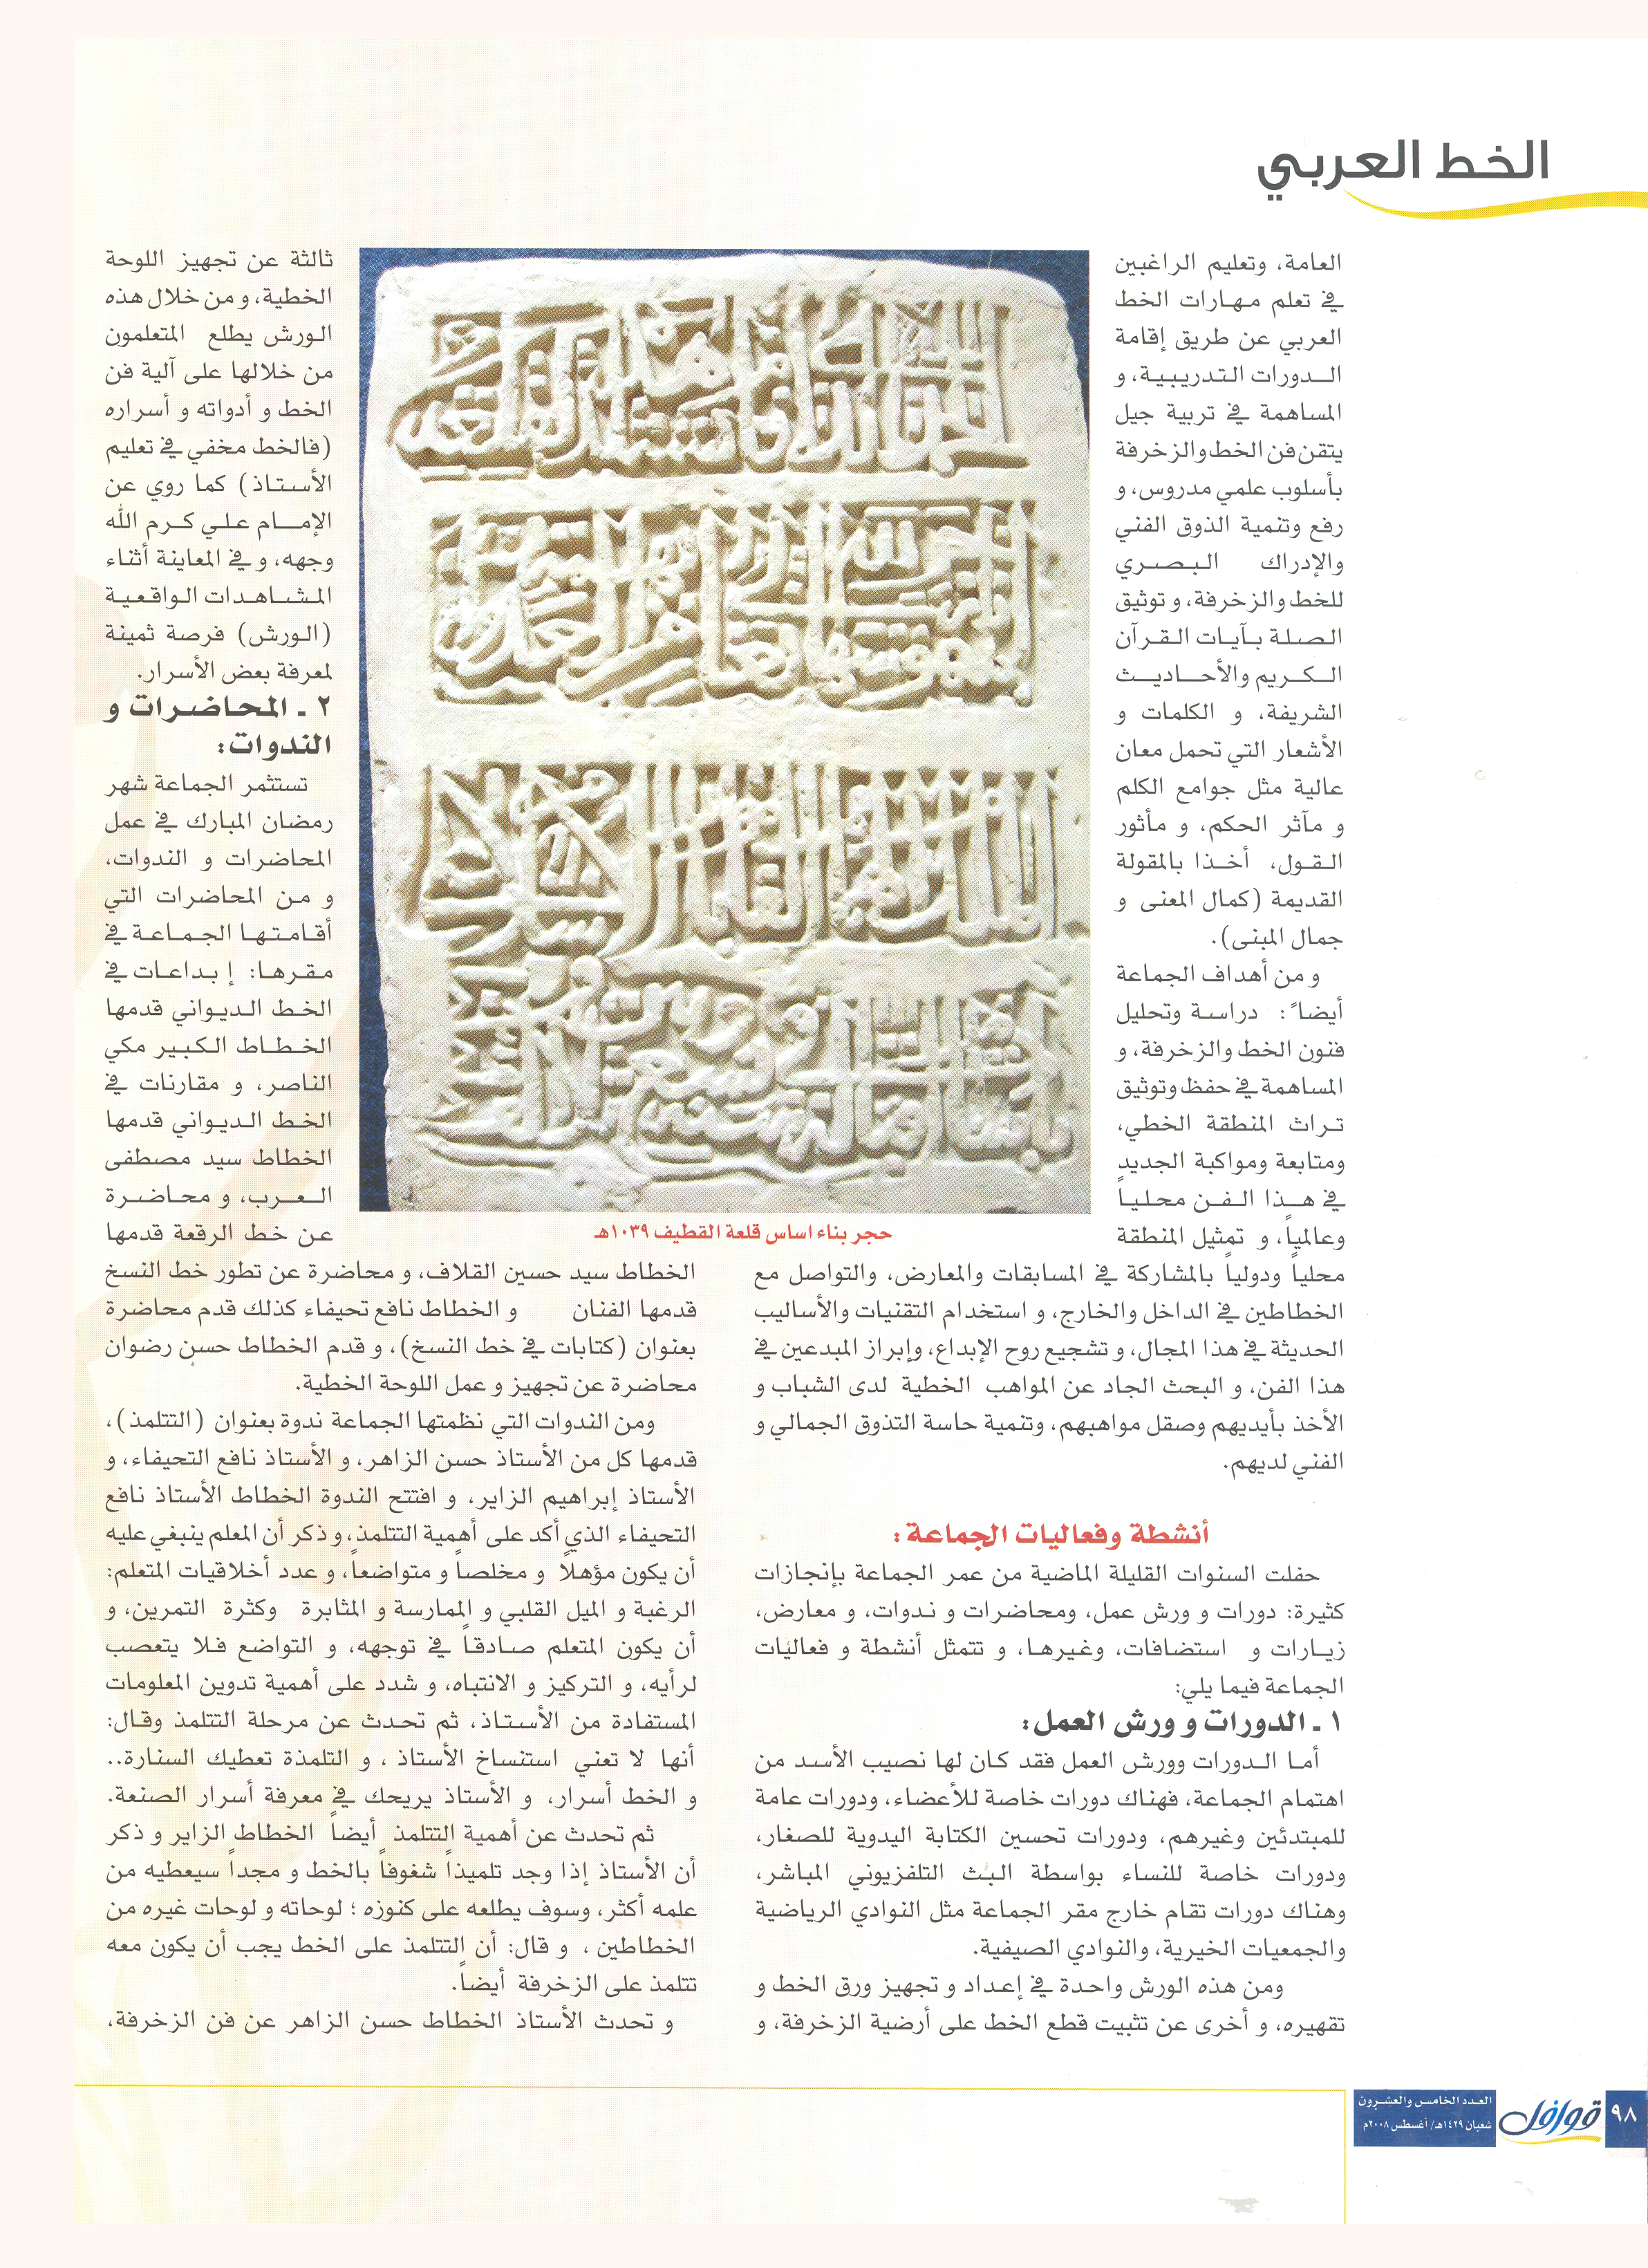 الخط العربي
العامة، وتعليم الراغبين
في تعلم مهارات الخط
العربي عن طريق إقامة
الدورات التدريبية، و
المساهمة في تربية جيل
يتقن فن الخط والزخرفة
بأسلوب علمي مدروس، و
رفع وتنمية الذوق الفني
والإدراك البصري
للخط والزخرفة، و توثيق
الصلة بآيات القرآن
الكريم والأحاديث
الشريفة، و الكلمات و
الأشعار التي تحمل معان
عالية مثل جوامع الكلم
و مآثر الحكم، و مأثور
القول، أخذا بالمقولة
القديمة (كمال المعنى و
جمال المبنى).
و من أهداف الجماعة
أيضاً: دراسة وتحليل
فنون الخط والزخرفة، و
المساهمة في حفظ وتوثيق
تراث المنطقة الخطي،
ومتابعة ومواكبة الجديد
في هذا الفن محلياً
وعالمياً، و تمثيل المنطقة
محلياً ودولياً بالمشاركة في المسابقات والمعارض، والتواصل مع
الخطاطين في الداخل والخارج، و استخدام التقنيات والأساليب
الحديثة في هذا المجال، و تشجيع روح الإبداع، وإبراز المبدعين في
هذا الفن، و البحث الجاد عن المواهب الخطية لدى الشباب و
الأخذ بأيديهم وصقل مواهبهم، وتنمية حاسة التذوق الجمالي و
الفني لديهم.
أنشطة وفعاليات الجماعة:
حفلت السنوات القليلة الماضية من عمر الجماعة بإنجازات
كثيرة: دورات و ورش عمل، ومحاضرات و ندوات، و معارض،
زيارات و استضافات، وغيرها، و تتمثل أنشطة و فعاليات
الجماعة فيما يلي:
١ ـ الدورات و ورش العمل:
أما الدورات وورش العمل فقد كان لها نصيب الأسد من
اهتمام الجماعة، فهناك دورات خاصة للأعضاء، ودورات عامة
للمبتدئين وغيرهم، ودورات تحسين الكتابة اليدوية للصغار،
ودورات خاصة للنساء بواسطة البث التلفزيوني المباشر،
وهناك دورات تقام خارج مقر الجماعة مثل النوادي الرياضية
والجمعيات الخيرية، والنوادي الصيفية.
ومن هذه الورش واحدة في إعداد و تجهيز ورق الخط و
تقهيره، و أخرى عن تثبيت قطع الخط على أرضية الزخرفة، و
حجر بناء اساس قلعة القطيف ١٠٣٩هـ
ثالثة عن تجهيز اللوحة
الخطية، و من خلال هذه
الورش يطلع المتعلمون
من خلالها على آلية فن
الخط و أدواته و أسراره
(فالخط مخفي في تعليم
الأستاذ) كما روي عن
الإمام علي كرم الله
وجهه، و في المعاينة أثناء
المشاهدات الواقعية
(الورش) فرصة ثمينة
لمعرفة بعض الأسرار.
٢ ـ المحاضرات و
الندوات:
تستثمر الجماعة شهر
رمضان المبارك في عمل
المحاضرات و الندوات،
و من المحاضرات التي
أقامتها الجماعة في
مقرها: إبداعات في
الخط الديواني قدمها
الخطاط الكبير مكي
الناصر، و مقارنات في
الخط الديواني قدمها
الخطاط سيد مصطفى
العرب، و محاضرة
عن خط الرقعة قدمها
الخطاط سيد حسين القلاف، و محاضرة عن تطور خط النسخ
قدمها الفنان و الخطاط نافع تحيفاء كذلك قدم محاضرة
بعنوان (كتابات في خط النسخ)، و قدم الخطاط حسن رضوان
محاضرة عن تجهيز و عمل اللوحة الخطية.
ومن الندوات التي نظمتها الجماعة ندوة بعنوان (التتلمذ)،
قدمها كل من الأستاذ حسن الزاهر، و الأستاذ نافع التحيفاء، و
الأستاذ إبراهيم الزاير، و افتتح الندوة الخطاط الأستاذ نافع
التحيفاء الذي أكد على أهمية التتلمذ، و ذكر أن المعلم ينبغي عليه
أن يكون مؤهلاً و مخلصاً و متواضعاً، و عدد أخلاقيات المتعلم:
الرغبة و الميل القلبي و الممارسة و المثابرة وكثرة التمرين، و
أن يكون المتعلم صادقاً في توجهه، و التواضع فلا يتعصب
لرأيه، و التركيز و الانتباه، و شدد على أهمية تدوين المعلومات
المستفادة من الأستاذ، ثم تحدث عن مرحلة التتلمذ وقال:
أنها لا تعني استنساخ الأستاذ ، و التلمذة تعطيك السنارة..
و الخط أسرار، و الأستاذ يريحك في معرفة أسرار الصنعة.
ثم تحدث عن أهمية التتلمذ أيضاً الخطاط الزاير و ذكر
أن الأستاذ إذا وجد تلميذاً شغوفاً بالخط و مجداً سيعطيه من
علمه أكثر، وسوف يطلعه على كنوزه ؛ لوحاته و لوحات غيره من
الخطاطين ، و قال: أن التتلمذ على الخط يجب أن يكون معه
تتلمذ على الزخرفة أيضاً.
و تحدث الأستاذ الخطاط حسن الزاهر عن فن الزخرفة،
٩٨
قوافل
العدد الخامس والعشرون
شعبان ١٤٢٩هـ/ أغسطس ٢٠٠٨م